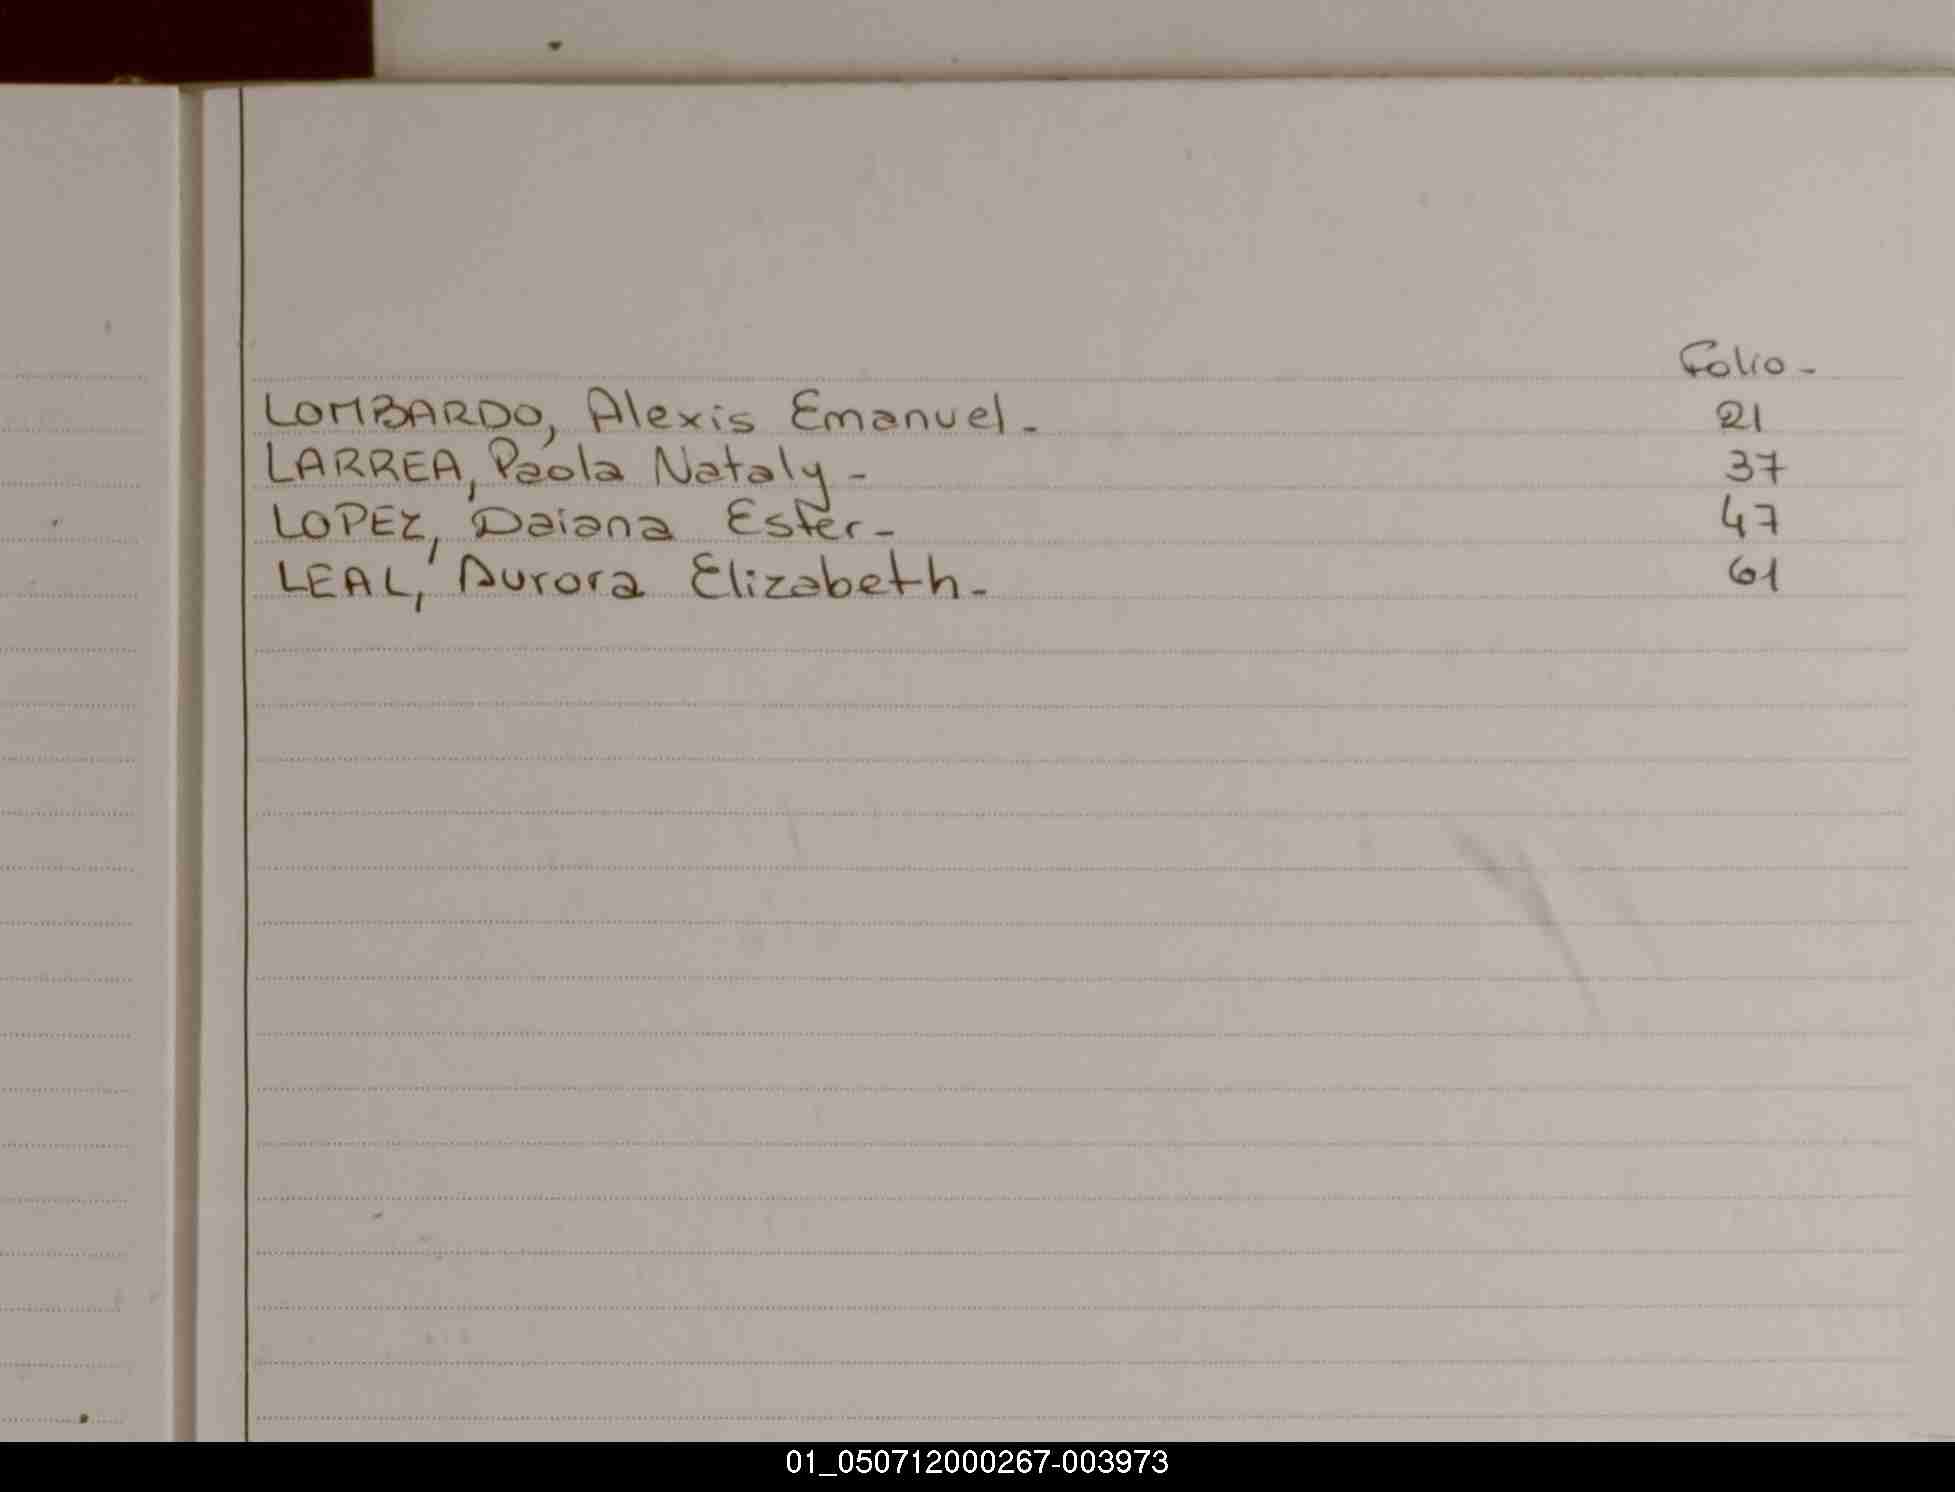 Folio -
LOMBARDO, Alexis Emanuel. - 21
LARREA, Paola Nataly - 37
LOPEZ, Daiana Ester - 47
LEAL, Aurora Elizabeth. - 61
01_050712000267-003973